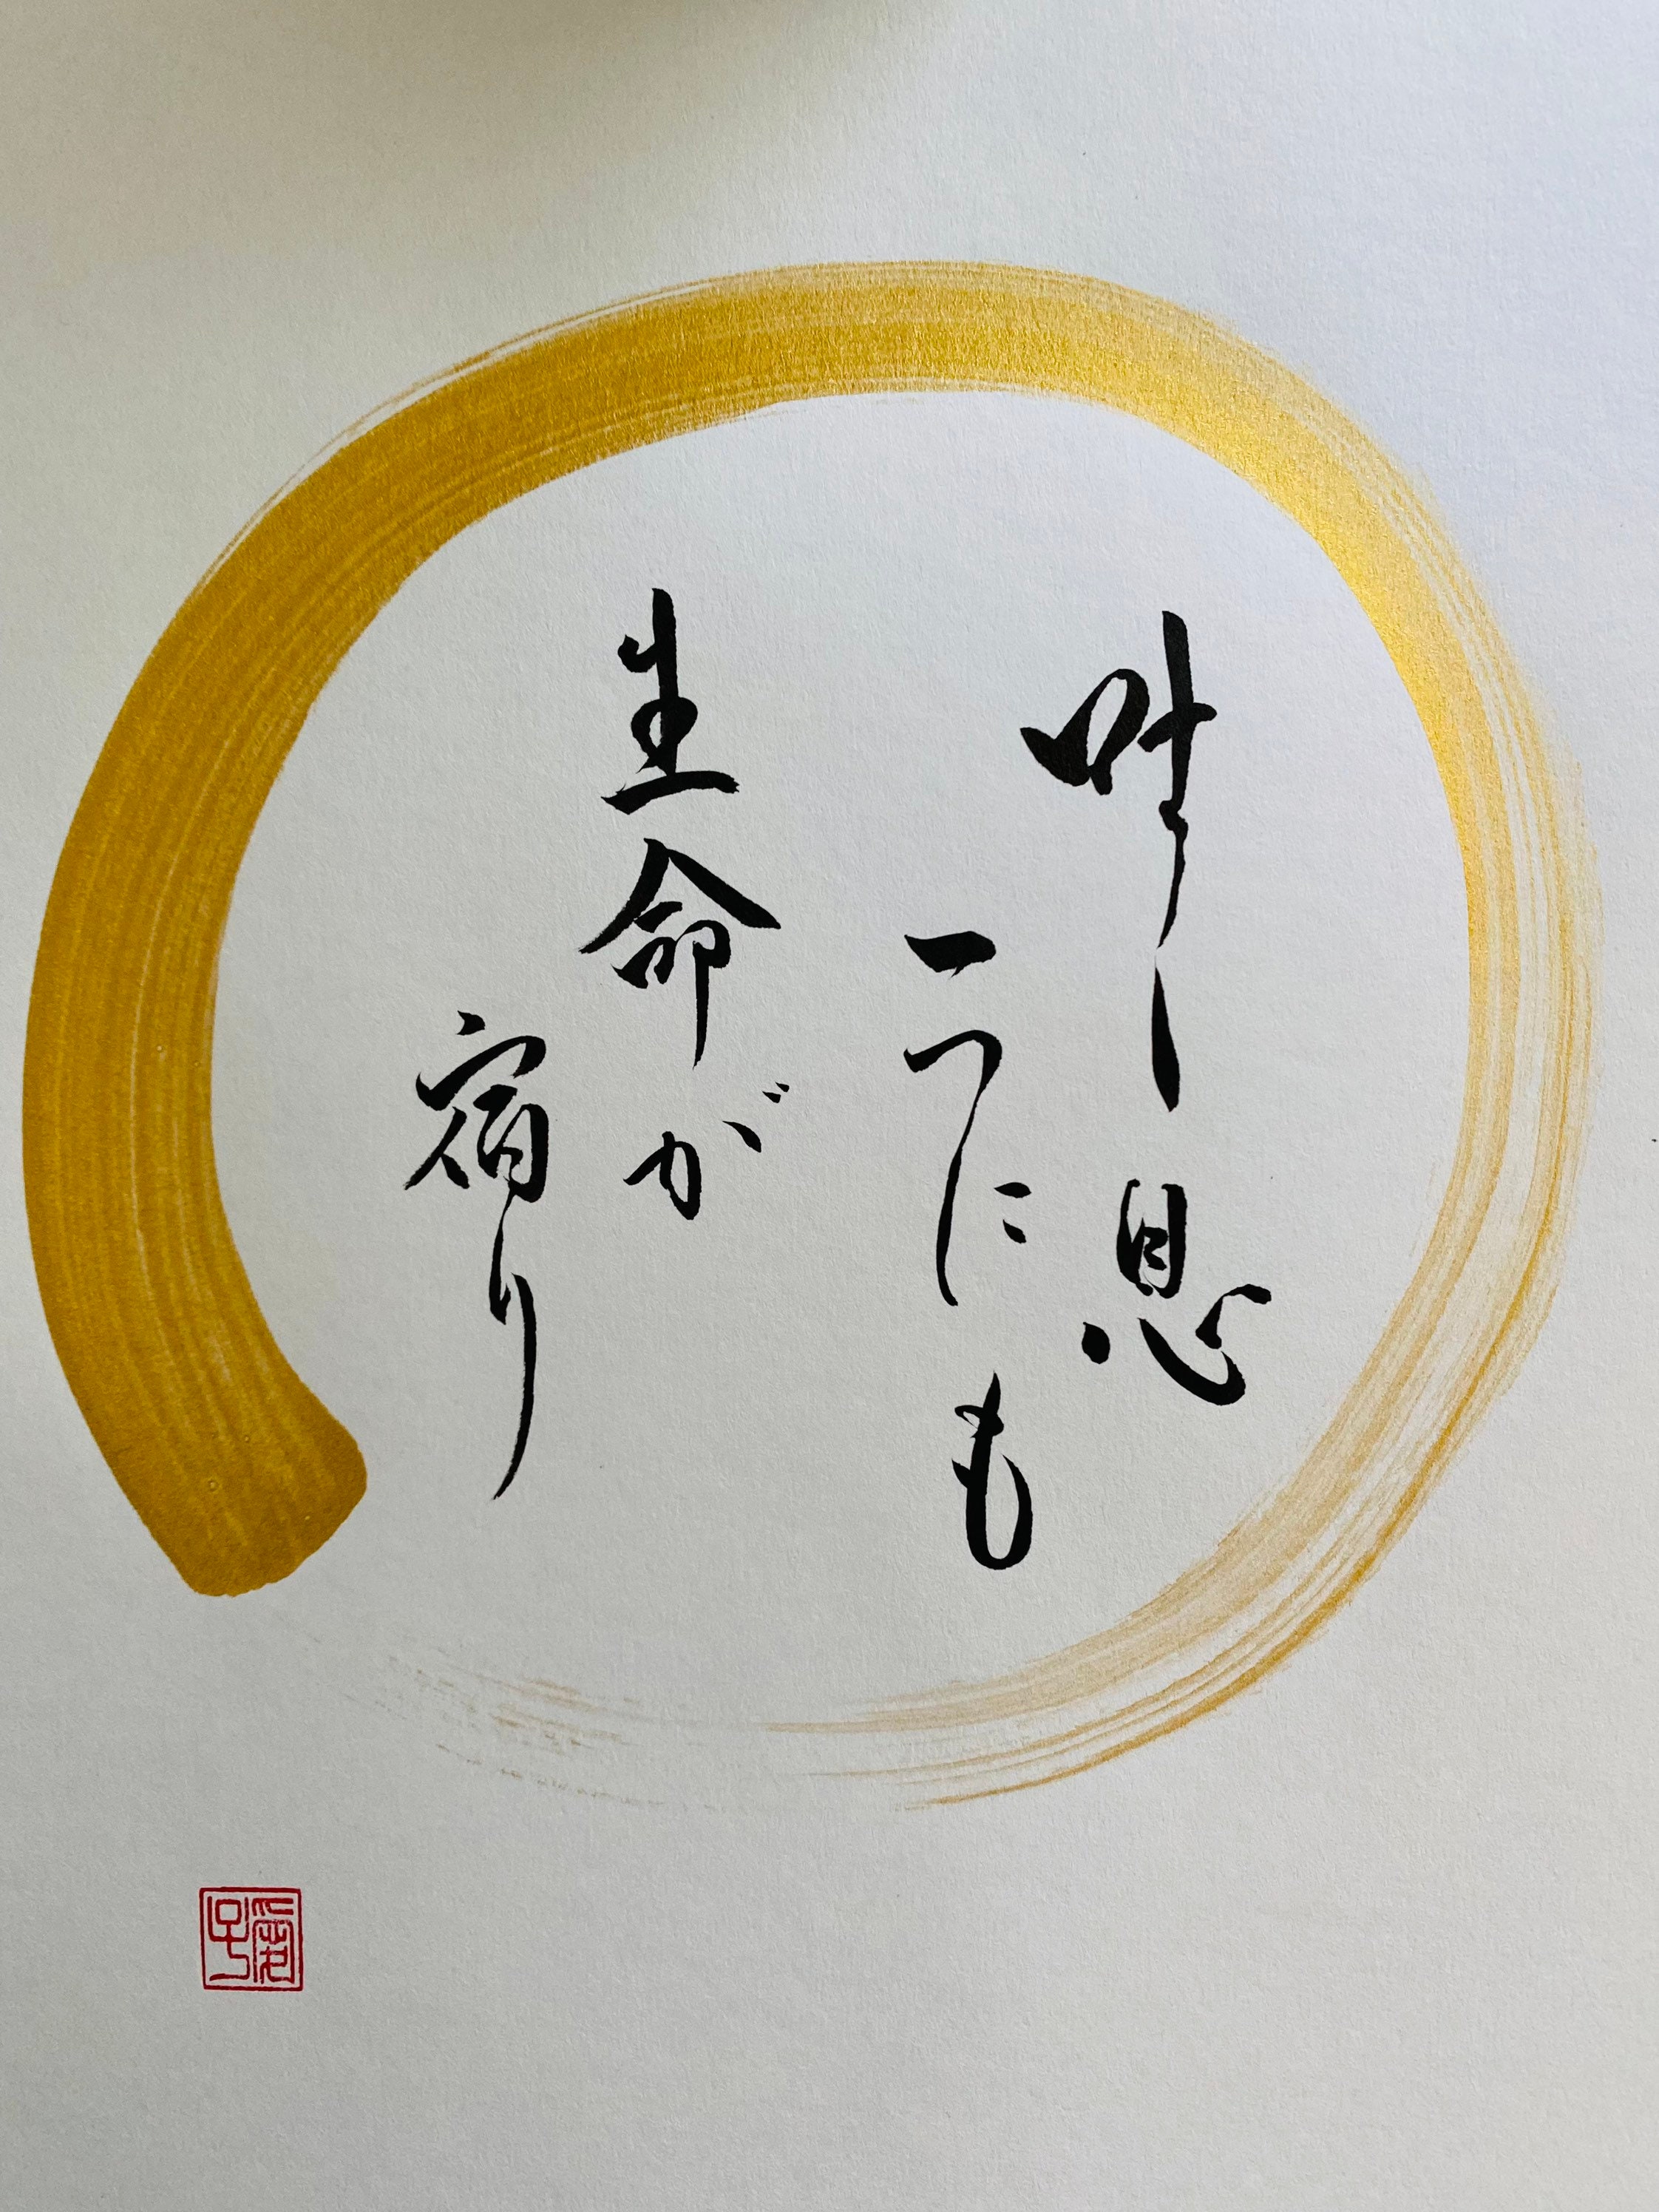 吐く息
一つにも
生命が
宿り